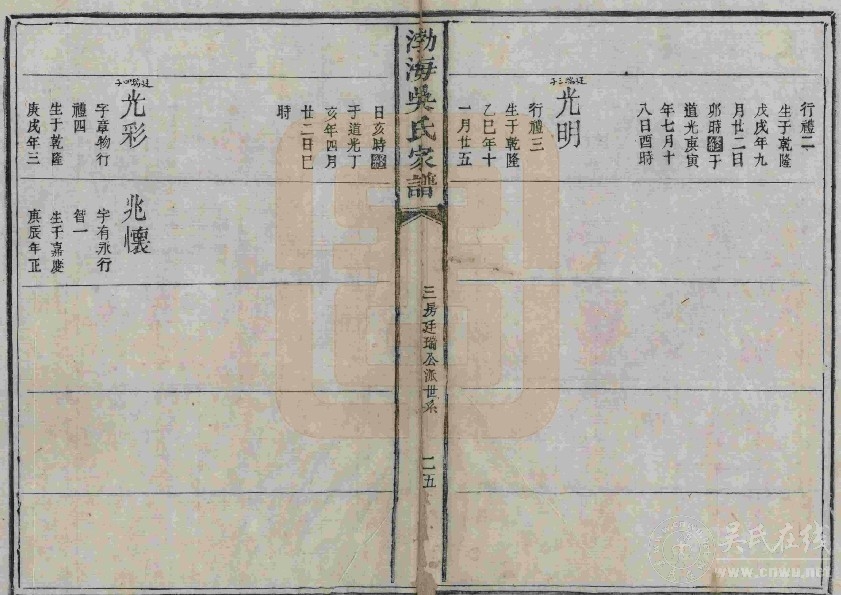 行禮二
生于乾隆
戊戌年九
月廿二日
卯時終于
道光庚寅
年七月十
八日酉時
廷瑞三子
光明
行禮三
生于乾隆
乙巳年十
一月廿五
渤海吳氏家譜
三房廷瑞公派世系
二五
日亥時終
于道光丁
亥年四月
廿二日巳
時
廷瑞四子
光彩
字章物行
禮四
生于乾隆
庚戌年三
兆懷
字有永行
智一
生于嘉慶
庚辰年正
吴氏在线
www.cnwu.net